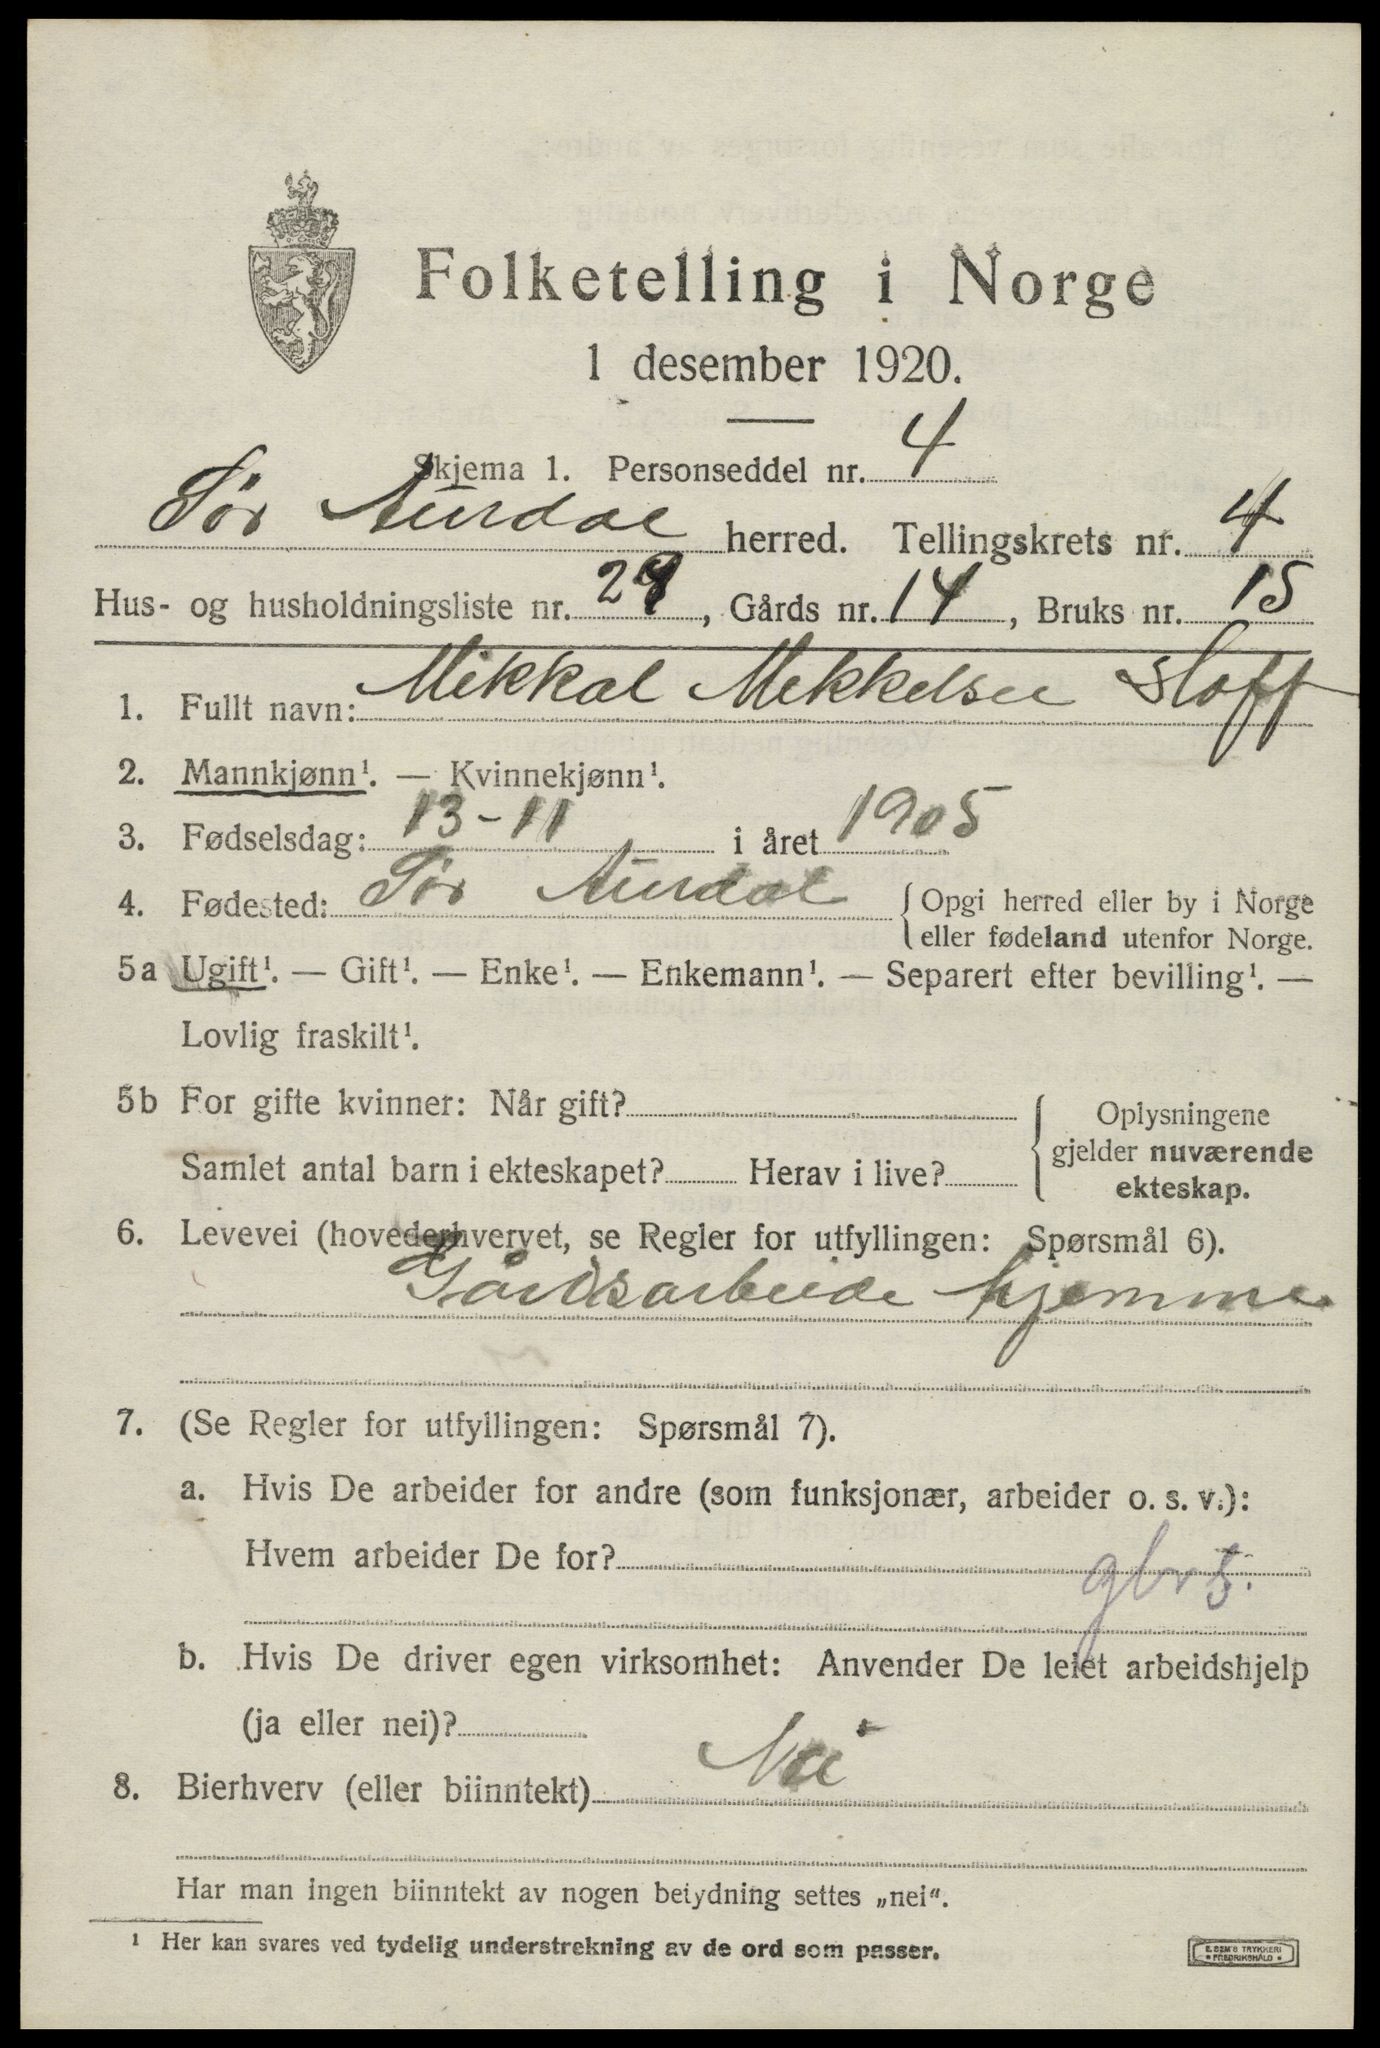 Folketelling i Norge
1 desember 1920.
Skjema 1. Personseddel nr. 4
Sør Aurdal herred. Tellingskrets nr. 4
Hus- og husholdningsliste nr. 29, Gårds nr. 14, Bruks nr. 15
1. Fullt navn: Mikkal Mekkelsen Hoff
2. Mannkjønn¹. — Kvinnekjønn¹.
3. Fødselsdag: 13-11 i året 1905
4. Fødested: Sør Aurdal { Opgi herred eller by i Norge
eller fødeland utenfor Norge.
5a Ugift¹. — Gift¹. — Enke¹. — Enkemann¹. — Separert efter bevilling¹. —
Lovlig fraskilt¹.
5b For gifte kvinner: Når gift?
Samlet antal barn i ekteskapet? Herav i live?
Oplysningene
gjelder nuværende
ekteskap.
6. Levevei (hovederhvervet, se Regler for utfyllingen: Spørsmål 6).
Gårdsarbeide hjemme
7. (Se Regler for utfyllingen: Spørsmål 7).
a. Hvis De arbeider for andre (som funksjonær, arbeider o. s. v.):
Hvem arbeider De for?
gbrs.
b. Hvis De driver egen virksomhet: Anvender De leiet arbeidshjelp
(ja eller nei)?
8. Bierhverv (eller biinntekt) Nei
Har man ingen biinntekt av nogen betydning settes „nei“.
¹ Her kan svares ved tydelig understrekning av de ord som passer.
E. SEM'S TRYKKERI
FREDRIKSHALD